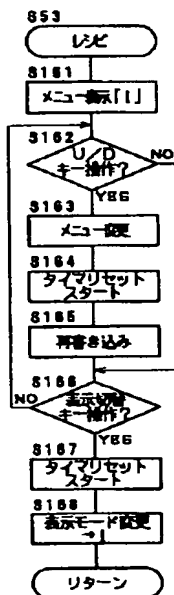 S53
レシピ
S161
メニュー表示「1」
S162
U/D
キー操作?
NO
YES
S163
メニュー変更
S164
タイマリセット
スタート
S165
再書き込み
S166
表示切替
キー操作?
NO
YES
S167
タイマリセット
スタート
S168
表示モード変更
→1
リターン